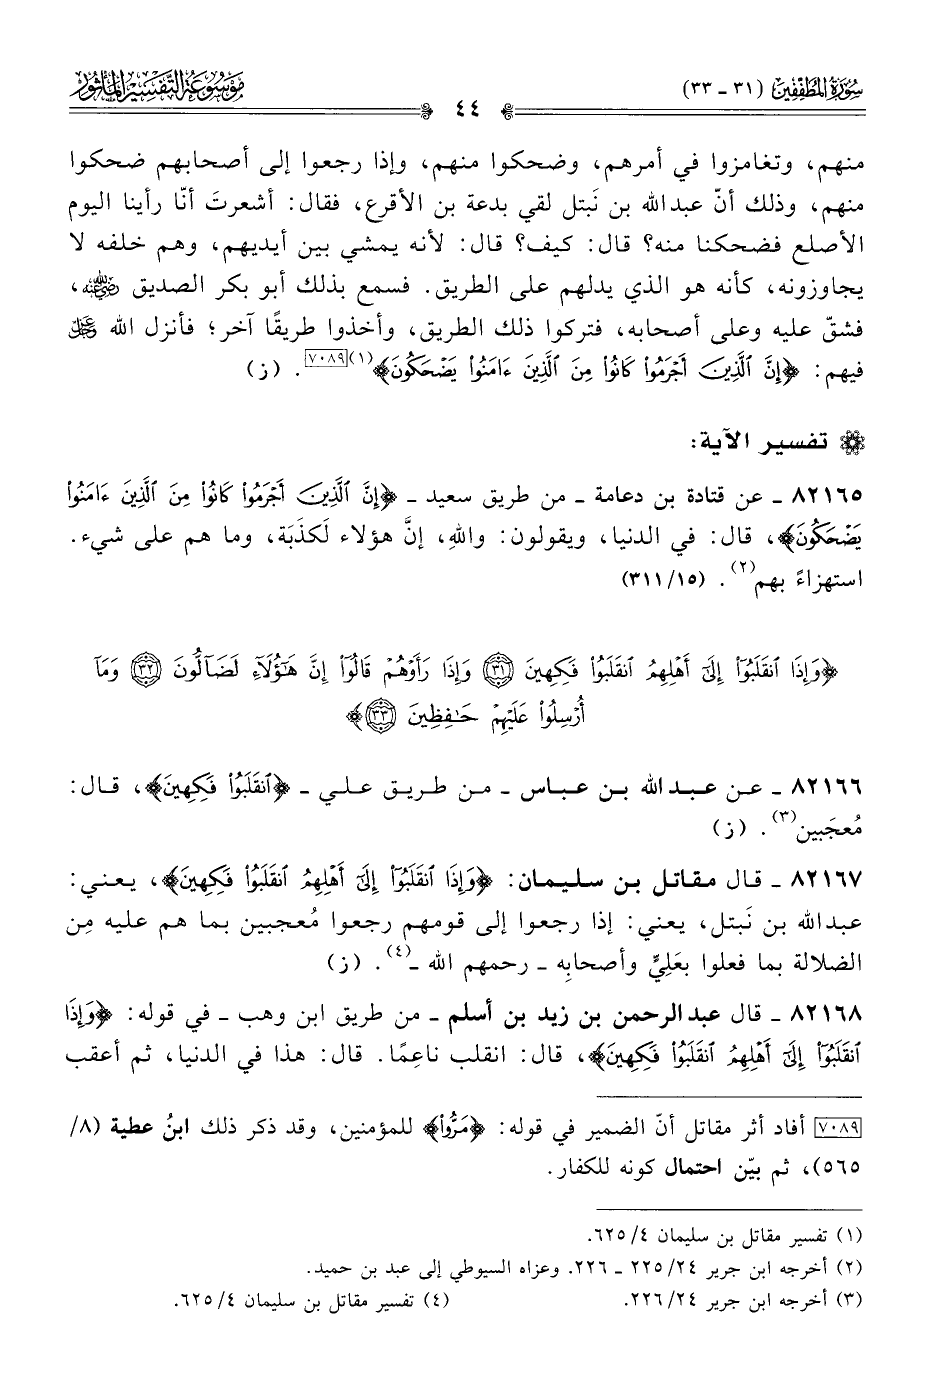 سُورَةُ المُطَفِّفِينَ (٣١ - ٣٣)
مَوْسُوعَةُ التَّفْسِيرِ المَأْثُورِ
٤٤
منهم، وتغامزوا في أمرهم، وضحكوا منهم، وإذا رجعوا إلى أصحابهم ضحكوا
منهم، وذلك أنّ عبدالله بن نَبتل لقي بدعة بن الأقرع، فقال: أشعرتَ أنّا رأينا اليوم
الأصلع فضحكنا منه؟ قال: كيف؟ قال: لأنه يمشي بين أيديهم، وهم خلفه لا
يجاوزونه، كأنه هو الذي يدلهم على الطريق. فسمع بذلك أبو بكر الصديق رضي الله عنه،
فشقّ عليه وعلى أصحابه، فتركوا ذلك الطريق، وأخذوا طريقًا آخر؛ فأنزل الله عز وجل
فيهم: ﴿إِنَّ ٱلَّذِينَ أَجْرَمُوا۟ كَانُوا۟ مِنَ ٱلَّذِينَ ءَامَنُوا۟ يَضْحَكُونَ﴾(١)[٧٠٨٩]. (ز)
تفسير الآية:
٨٢١٦٥ - عن قتادة بن دعامة - من طريق سعيد - ﴿إِنَّ ٱلَّذِينَ أَجْرَمُوا۟ كَانُوا۟ مِنَ ٱلَّذِينَ ءَامَنُوا۟
يَضْحَكُونَ﴾، قال: في الدنيا، ويقولون: واللهِ، إنَّ هؤلاء لَكذَبَة، وما هم على شيء.
استهزاءً بهم(٢). (١٥/٣١١)
﴿وَإِذَا ٱنقَلَبُوٓا۟ إِلَىٰٓ أَهْلِهِمُ ٱنقَلَبُوا۟ فَكِهِينَ ٣١ وَإِذَا رَأَوْهُمْ قَالُوٓا۟ إِنَّ هَـٰٓؤُلَآءِ لَضَآلُّونَ ٣٢ وَمَآ
أُرْسِلُوا۟ عَلَيْهِمْ حَـٰفِظِينَ ٣٣﴾
٨٢١٦٦ - عن عبدالله بن عباس - من طريق علي - ﴿ٱنقَلَبُوا۟ فَكِهِينَ﴾، قال:
مُعجَبين(٣). (ز)
٨٢١٦٧ - قال مقاتل بن سليمان: ﴿وَإِذَا ٱنقَلَبُوٓا۟ إِلَىٰٓ أَهْلِهِمُ ٱنقَلَبُوا۟ فَكِهِينَ﴾، يعني:
عبدالله بن نَبتل، يعني: إذا رجعوا إلى قومهم رجعوا مُعجبين بما هم عليه مِن
الضلالة بما فعلوا بعَلِيٍّ وأصحابِه - رحمهم الله -(٤). (ز)
٨٢١٦٨ - قال عبدالرحمن بن زيد بن أسلم - من طريق ابن وهب - في قوله: ﴿وَإِذَا
ٱنقَلَبُوٓا۟ إِلَىٰٓ أَهْلِهِمُ ٱنقَلَبُوا۟ فَكِهِينَ﴾، قال: انقلب ناعِمًا. قال: هذا في الدنيا، ثم أعقب
[٧٠٨٩] أفاد أثر مقاتل أنّ الضمير في قوله: ﴿مَرُّوا۟﴾ للمؤمنين، وقد ذكر ذلك ابنُ عطية (٨/
٥٦٥)، ثم بيّن احتمال كونه للكفار.
(١) تفسير مقاتل بن سليمان ٤/ ٦٢٥.
(٢) أخرجه ابن جرير ٢٤/ ٢٢٥ - ٢٢٦. وعزاه السيوطي إلى عبد بن حميد.
(٣) أخرجه ابن جرير ٢٤/ ٢٢٦. (٤) تفسير مقاتل بن سليمان ٤/ ٦٢٥.